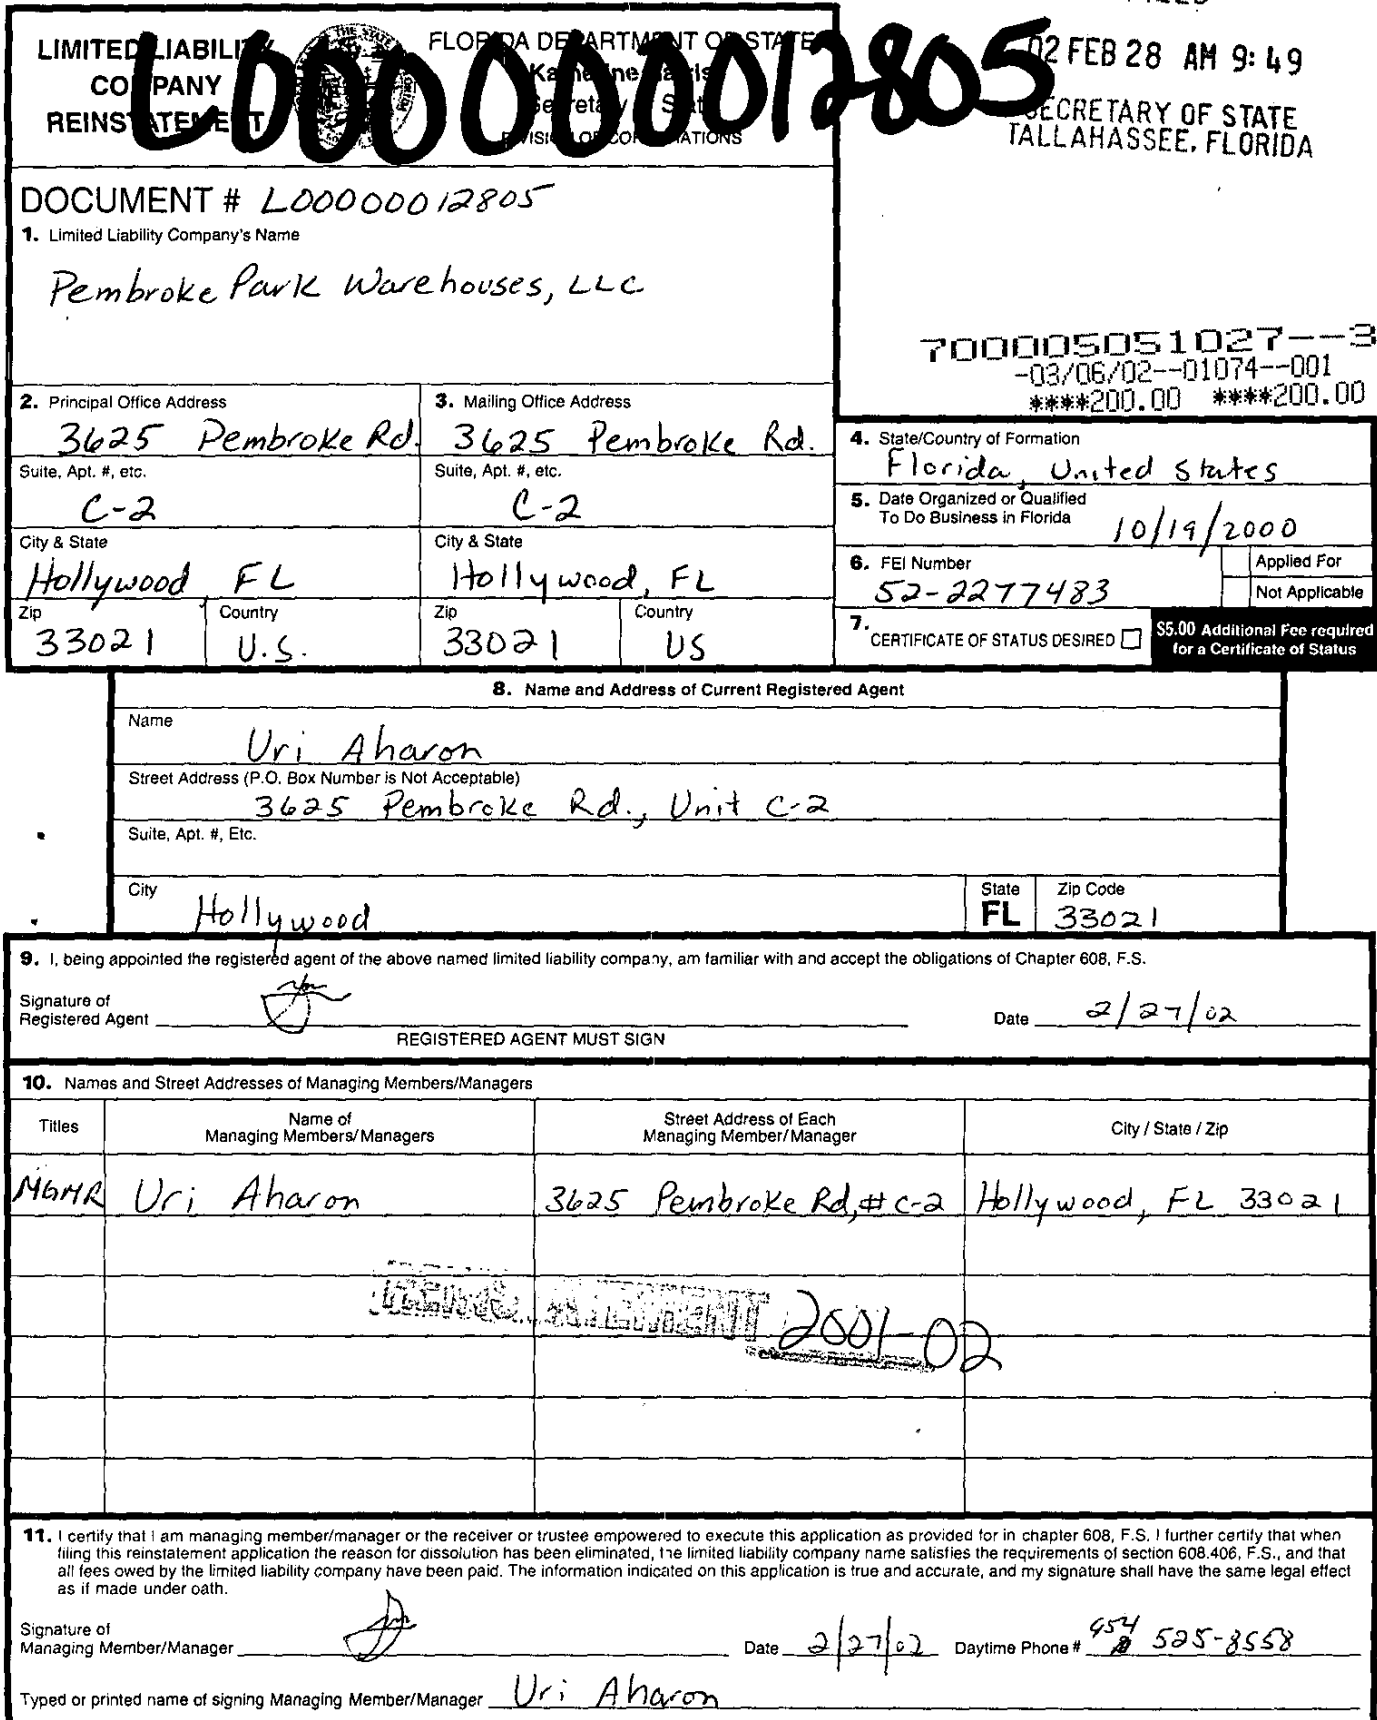 LIMITED LIABILITY
COMPANY
REINSTATEMENT
FLORIDA DEPARTMENT OF STATE
Katherine Harris
Secretary of State
DIVISION OF CORPORATIONS
L00000012805
02 FEB 28 AM 9:49
SECRETARY OF STATE
TALLAHASSEE, FLORIDA
DOCUMENT # L00000012805
1. Limited Liability Company's Name
Pembroke Park Warehouses, LLC
700005051027--3
-03/06/02--01074--001
****200.00 ****200.00
2. Principal Office Address
3625 Pembroke Rd.
Suite, Apt. #, etc.
C-2
City & State
Hollywood, FL
Zip
33021
Country
U.S.
3. Mailing Office Address
3625 Pembroke Rd.
Suite, Apt. #, etc.
C-2
City & State
Hollywood, FL
Zip
33021
Country
US
4. State/Country of Formation
Florida, United States
5. Date Organized or Qualified
To Do Business in Florida
10/19/2000
6. FEI Number
52-2277483
Applied For
Not Applicable
7. CERTIFICATE OF STATUS DESIRED
$5.00 Additional Fee required
for a Certificate of Status
8. Name and Address of Current Registered Agent
Name
Uri Aharon
Street Address (P.O. Box Number is Not Acceptable)
3625 Pembroke Rd., Unit C-2
Suite, Apt. #, Etc.
City
Hollywood
State
FL
Zip Code
33021
9. I, being appointed the registered agent of the above named limited liability company, am familiar with and accept the obligations of Chapter 608, F.S.
Signature of
Registered Agent
Date 2/27/02
REGISTERED AGENT MUST SIGN
10. Names and Street Addresses of Managing Members/Managers
Titles
Name of
Managing Members/Managers
Street Address of Each
Managing Member/Manager
City / State / Zip
MGMR Uri Aharon 3625 Pembroke Rd, # C-2 Hollywood, FL 33021
REINSTATEMENT 2001-02
11. I certify that I am managing member/manager or the receiver or trustee empowered to execute this application as provided for in chapter 608, F.S. I further certify that when
filing this reinstatement application the reason for dissolution has been eliminated, the limited liability company name satisfies the requirements of section 608.406, F.S., and that
all fees owed by the limited liability company have been paid. The information indicated on this application is true and accurate, and my signature shall have the same legal effect
as if made under oath.
Signature of
Managing Member/Manager
Date 2/27/02 Daytime Phone # 954 525-8558
Typed or printed name of signing Managing Member/Manager Uri Aharon